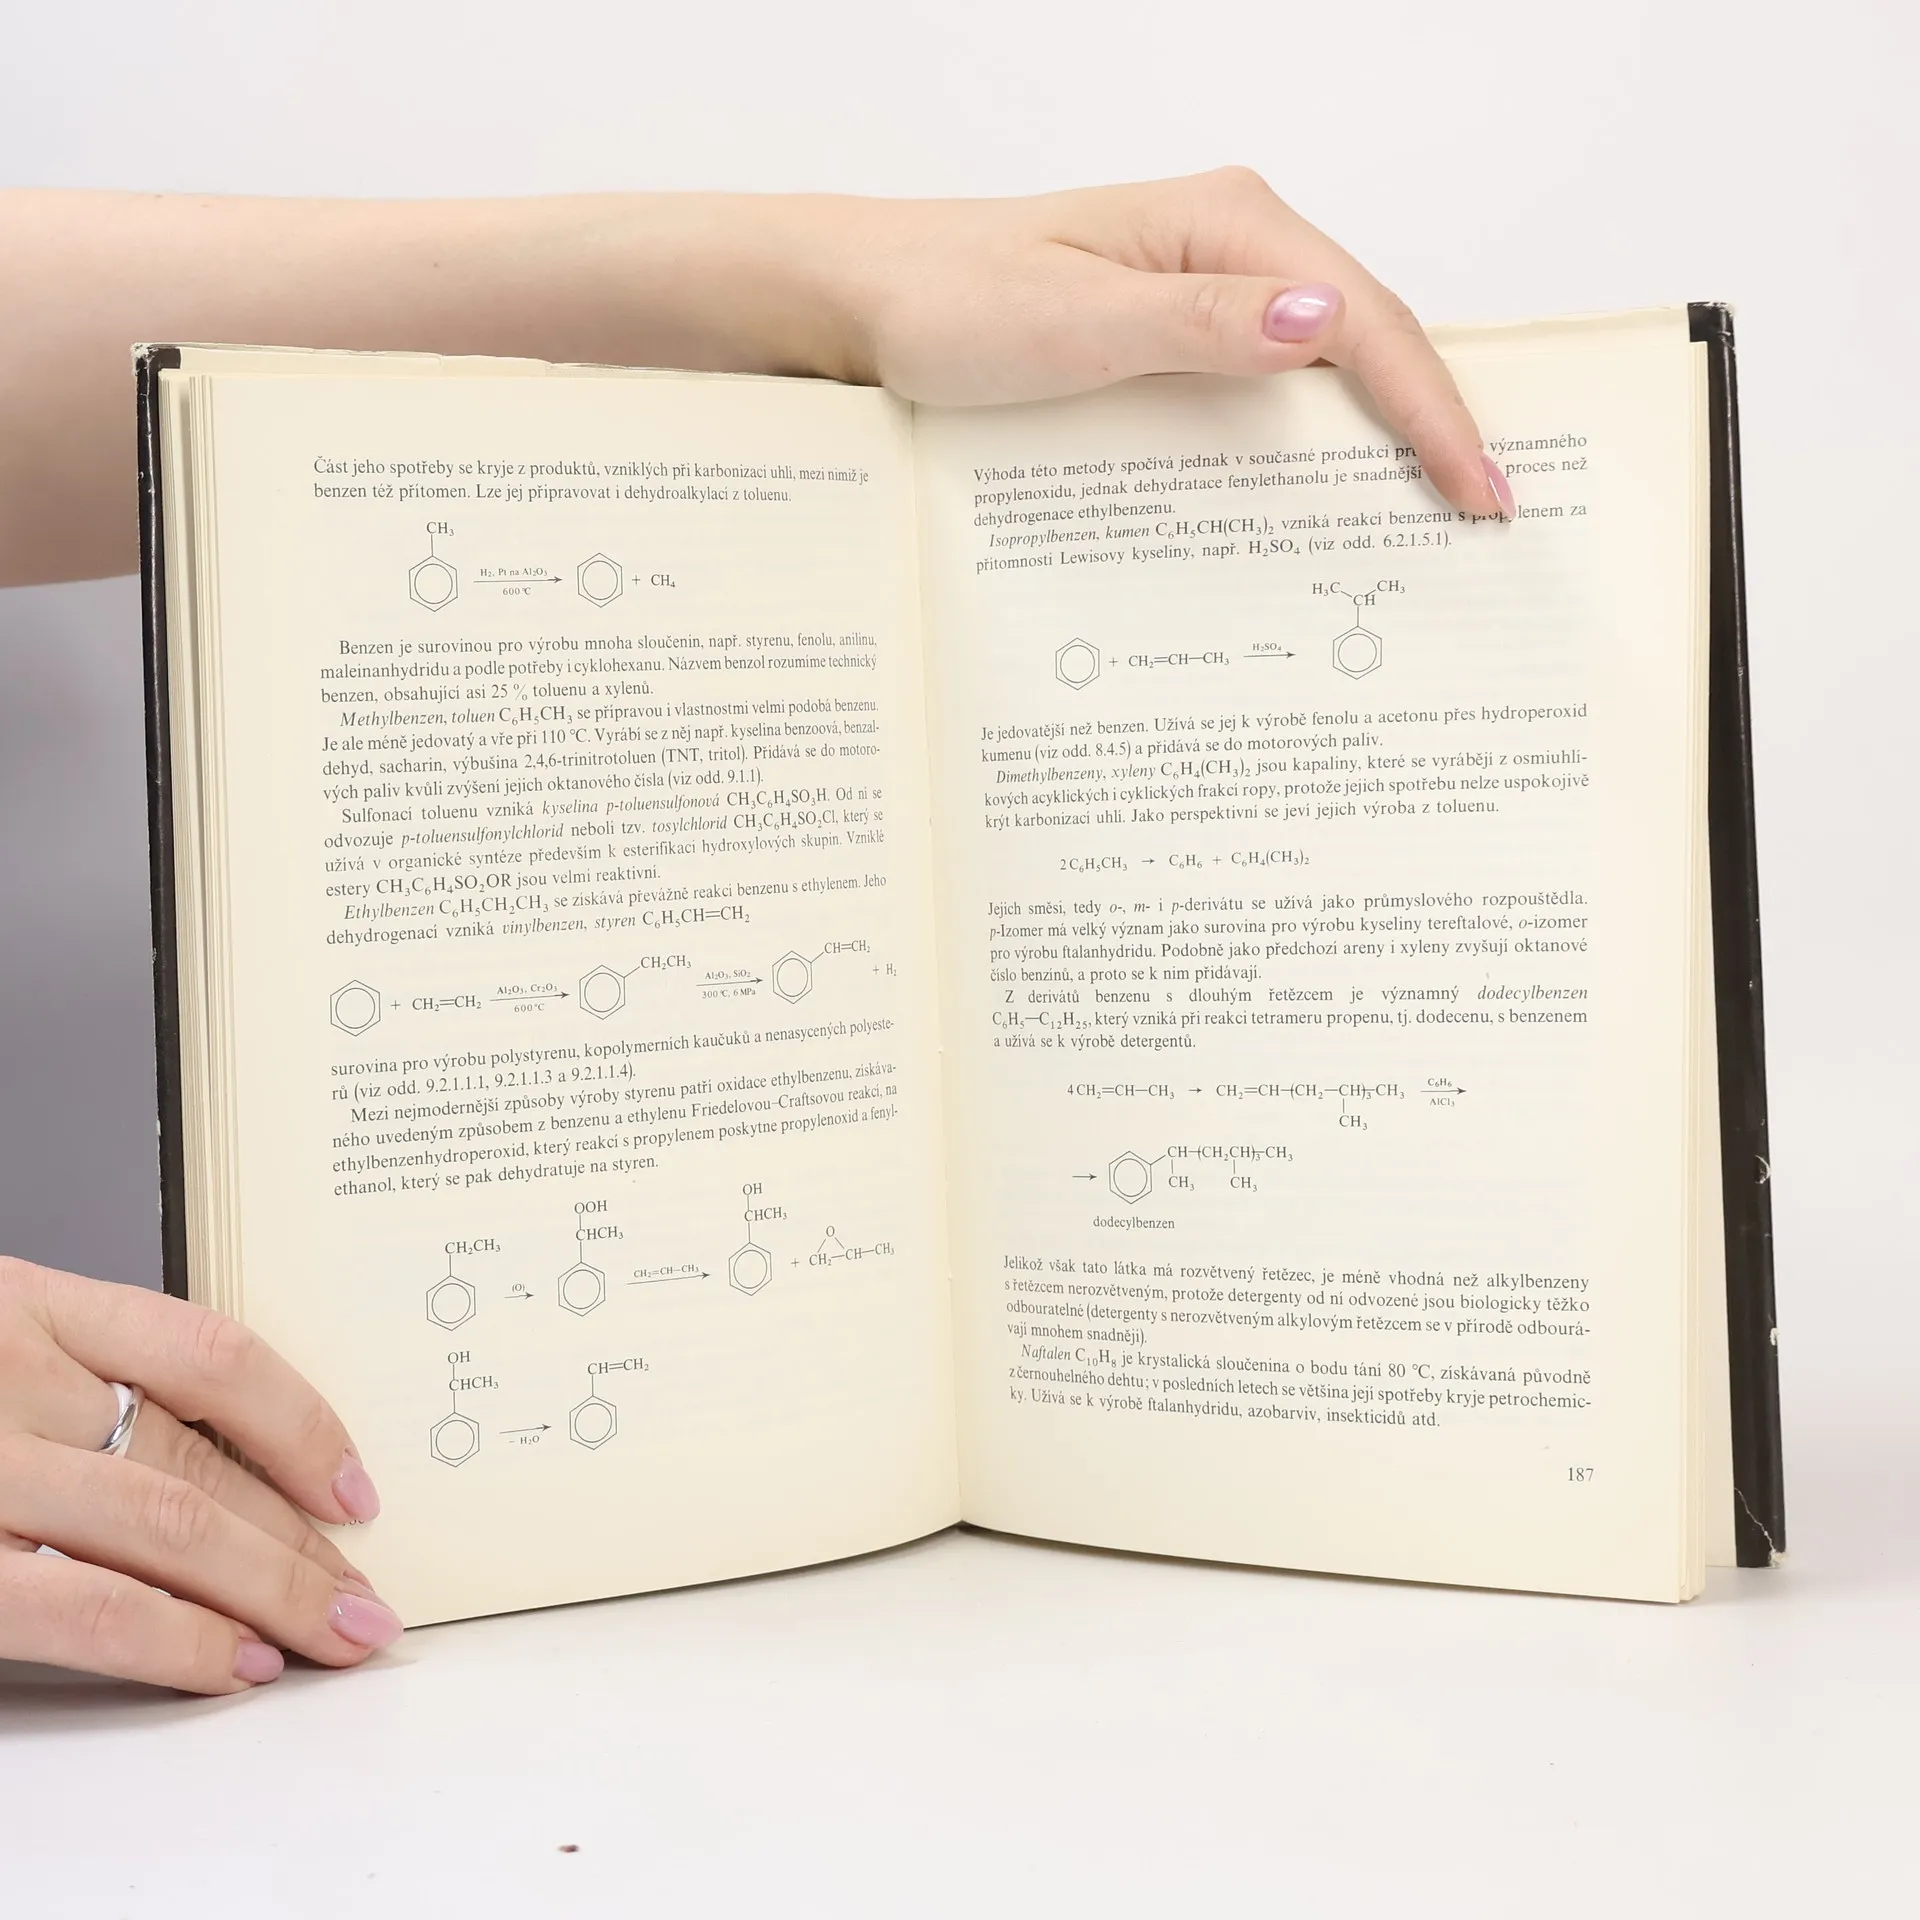 Část jeho spotřeby se kryje z produktů, vzniklých při karbonizaci uhlí, mezi nimiž je
benzen též přítomen. Lze jej připravovat i dehydroalkylací z toluenu.
CH₃
H₂, Pt na Al₂O₃
600 °C
+ CH₄
Benzen je surovinou pro výrobu mnoha sloučenin, např. styrenu, fenolu, anilinu,
maleinanhydridu a podle potřeby i cyklohexanu. Názvem benzol rozumíme technický
benzen, obsahující asi 25 % toluenu a xylenů.
Methylbenzen, toluen C₆H₅CH₃ se přípravou i vlastnostmi velmi podobá benzenu.
Je ale méně jedovatý a vře při 110 °C. Vyrábí se z něj např. kyselina benzoová, benzal-
dehyd, sacharin, výbušina 2,4,6-trinitrotoluen (TNT, tritol). Přidává se do motoro-
vých paliv kvůli zvýšení jejich oktanového čísla (viz odd. 9.1.1).
Sulfonací toluenu vzniká kyselina p-toluensulfonová CH₃C₆H₄SO₃H. Od ní se
odvozuje p-toluensulfonylchlorid neboli tzv. tosylchlorid CH₃C₆H₄SO₂Cl, který se
užívá v organické syntéze především k esterifikaci hydroxylových skupin. Vzniklé
estery CH₃C₆H₄SO₂OR jsou velmi reaktivní.
Ethylbenzen C₆H₅CH₂CH₃ se získává převážně reakcí benzenu s ethylenem. Jeho
dehydrogenací vzniká vinylbenzen, styren C₆H₅CH=CH₂
+ CH₂=CH₂ Al₂O₃, Cr₂O₃ CH₂CH₃ Al₂O₃, SiO₂ CH=CH₂ + H₂
600 °C 300 °C, 6 MPa
surovina pro výrobu polystyrenu, kopolymerních kaučuků a nenasycených polyeste-
rů (viz odd. 9.2.1.1.1, 9.2.1.1.3 a 9.2.1.1.4).
Mezi nejmodernější způsoby výroby styrenu patří oxidace ethylbenzenu, získáva-
ného uvedeným způsobem z benzenu a ethylenu Friedelovou–Craftsovou reakcí, na
ethylbenzenhydroperoxid, který reakcí s propylenem poskytne propylenoxid a fenyl-
ethanol, který se pak dehydratuje na styren.
OOH OH
CH₂CH₃ CHCH₃ CHCH₃ O
(O) CH₂=CH—CH₃ + CH₂—CH—CH₃
OH
CHCH₃ CH=CH₂
– H₂O
Výhoda této metody spočívá jednak v současné produkci významného
propylenoxidu, jednak dehydratace fenylethanolu je snadnější proces než
dehydrogenace ethylbenzenu.
Isopropylbenzen, kumen C₆H₅CH(CH₃)₂ vzniká reakcí benzenu s propylenem za
přítomnosti Lewisovy kyseliny, např. H₂SO₄ (viz odd. 6.2.1.5.1).
H₃C CH₃
CH
+ CH₂=CH—CH₃ H₂SO₄
Je jedovatější než benzen. Užívá se jej k výrobě fenolu a acetonu přes hydroperoxid
kumenu (viz odd. 8.4.5) a přidává se do motorových paliv.
Dimethylbenzeny, xyleny C₆H₄(CH₃)₂ jsou kapaliny, které se vyrábějí z osmiuhlí-
kových acyklických i cyklických frakcí ropy, protože jejich spotřebu nelze uspokojivě
krýt karbonizací uhlí. Jako perspektivní se jeví jejich výroba z toluenu.
2 C₆H₅CH₃ → C₆H₆ + C₆H₄(CH₃)₂
Jejich směsi, tedy o-, m- i p-derivátu se užívá jako průmyslového rozpouštědla.
p-Izomer má velký význam jako surovina pro výrobu kyseliny tereftalové, o-izomer
pro výrobu ftalanhydridu. Podobně jako předchozí areny i xyleny zvyšují oktanové
číslo benzinů, a proto se k nim přidávají.
Z derivátů benzenu s dlouhým řetězcem je významný dodecylbenzen
C₆H₅—C₁₂H₂₅, který vzniká při reakci tetrameru propenu, tj. dodecenu, s benzenem
a užívá se k výrobě detergentů.
4 CH₂=CH—CH₃ → CH₂=CH—(CH₂—CH)₃—CH₃ C₆H₆
AlCl₃
CH₃
→ CH—(CH₂CH)₃—CH₃
CH₃ CH₃
dodecylbenzen
Jelikož však tato látka má rozvětvený řetězec, je méně vhodná než alkylbenzeny
s řetězcem nerozvětveným, protože detergenty od ní odvozené jsou biologicky těžko
odbouratelné (detergenty s nerozvětveným alkylovým řetězcem se v přírodě odbourá-
vají mnohem snadněji).
Naftalen C₁₀H₈ je krystalická sloučenina o bodu tání 80 °C, získávaná původně
z černouhelného dehtu; v posledních letech se většina její spotřeby kryje petrochemic-
ky. Užívá se k výrobě ftalanhydridu, azobarviv, insekticidů atd.
187